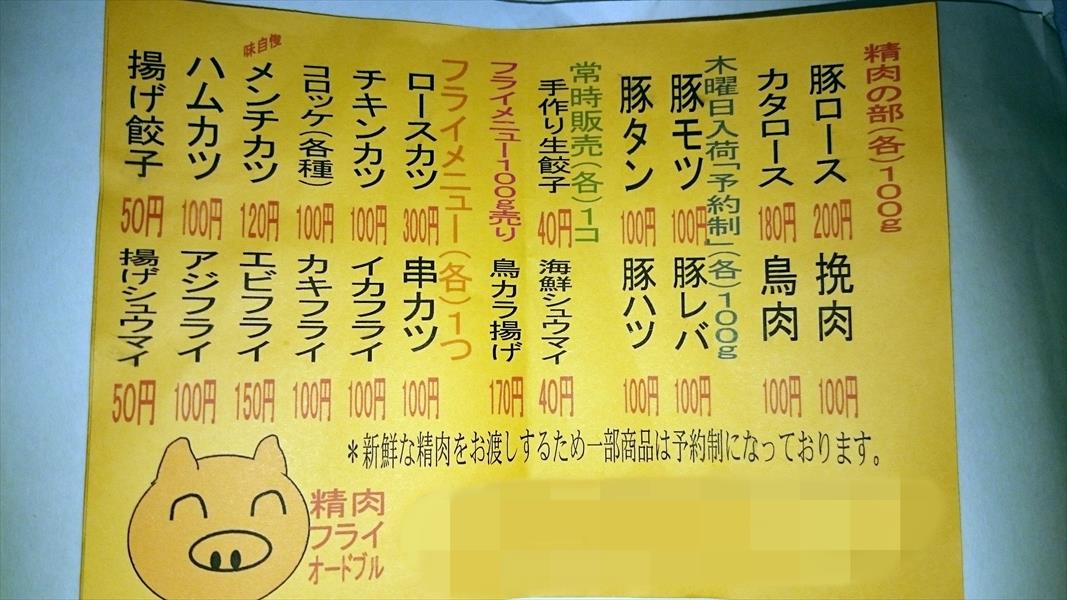 精肉の部(各)100g
豚ロース 200円 挽肉 100円
カタロース 180円 鳥肉 100円
木曜日入荷「予約制」(各)100g
豚モツ 100円 豚レバ 100円
豚タン 100円 豚ハツ 100円
常時販売(各)1コ
手作り生餃子 40円 海鮮シュウマイ 40円
フライメニュー100g売り
鳥カラ揚げ 170円
フライメニュー(各)1つ
ロースカツ 300円 串カツ 100円
チキンカツ 100円 イカフライ 100円
コロッケ(各種) 100円 カキフライ 100円
味自慢
メンチカツ 120円 エビフライ 150円
ハムカツ 100円 アジフライ 100円
揚げ餃子 50円 揚げシュウマイ 50円
*新鮮な精肉をお渡しするため一部商品は予約制になっております。
精肉
フライ
オードブル